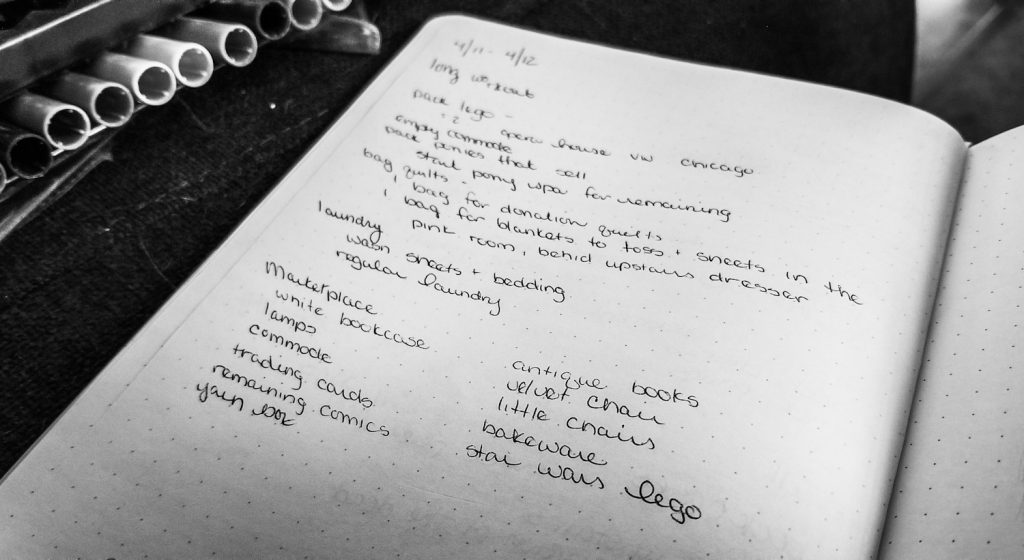 4/11 - 4/12
long workout
pack lego -
opera house vw chicago
empty commode
pack ponies that sell
start pony upa for remaining
bag quilts -
1 bag for donation quilts
1 bag for blankets to toss + sheets in the
pink room, behid upstairs dresser
laundry
wash sheets + bedding
regular laundry
Marketplace
white bookcase
lamps
commode
trading cards
remaining comics
yarn
antique books
velvet chair
little chairs
bakeware
star wars lego